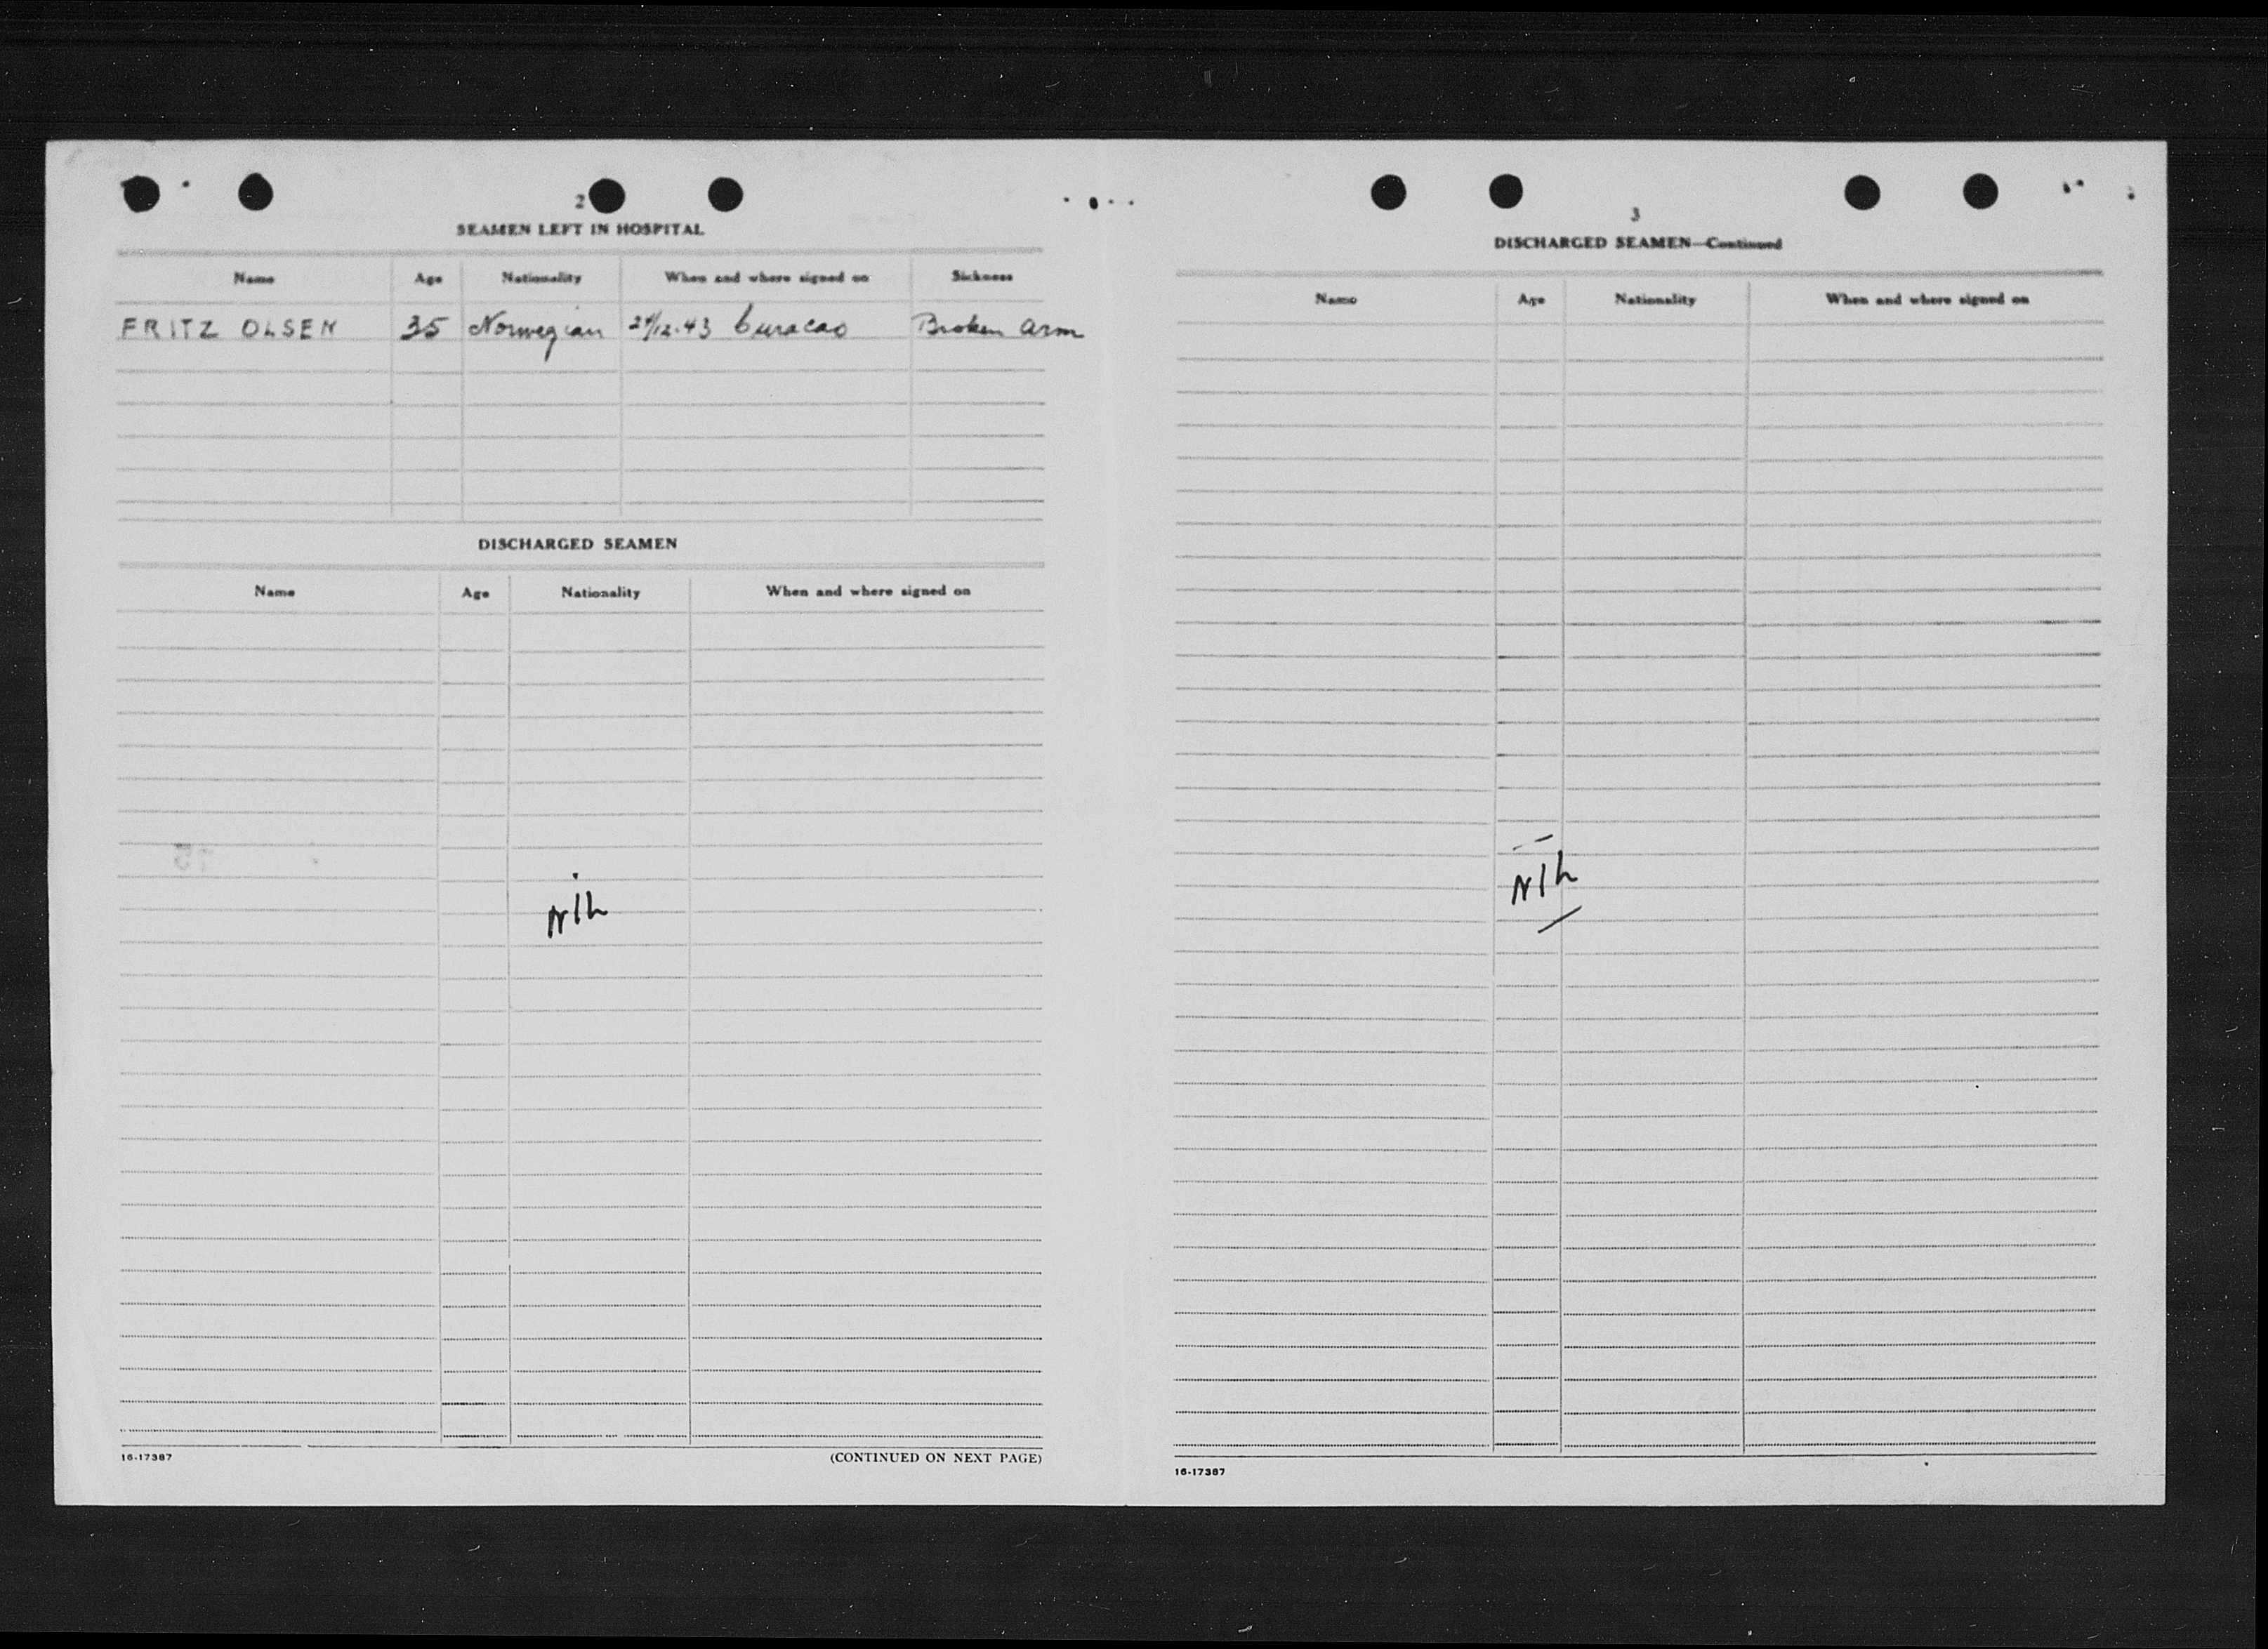 2
SEAMEN LEFT IN HOSPITAL
Name Age Nationality When and where signed on Sickness
FRITZ OLSEN 35 Norwegian 24/12-43 Curacao Broken arm
DISCHARGED SEAMEN
Name Age Nationality When and where signed on
Nil
16-17387 (CONTINUED ON NEXT PAGE)
3
DISCHARGED SEAMEN—Continued
Name Age Nationality When and where signed on
Nil
16-17387